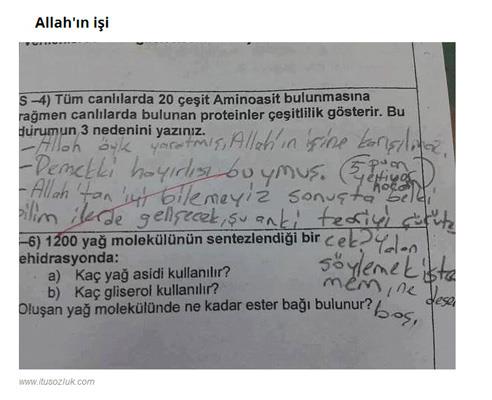 Allah'ın işi
S –4) Tüm canlılarda 20 çeşit Aminoasit bulunmasına
rağmen canlılarda bulunan proteinler çeşitlilik gösterir. Bu
durumun 3 nedenini yazınız.
- Allah öyle yaratmış, Allah'ın işine karışılmaz.
- Demekki hayırlısı buymuş. (5 puan yetiyor hocam)
- Allah'tan iyi bilemeyiz sonuçta belki
bilim ilerde gelişecek, şu anki teoriyi çürüte
cek? Yalan
söylemek iste
mem, ne desem
boş.
–6) 1200 yağ molekülünün sentezlendiği bir
ehidrasyonda:
a) Kaç yağ asidi kullanılır?
b) Kaç gliserol kullanılır?
Oluşan yağ molekülünde ne kadar ester bağı bulunur?
www.itusozluk.com